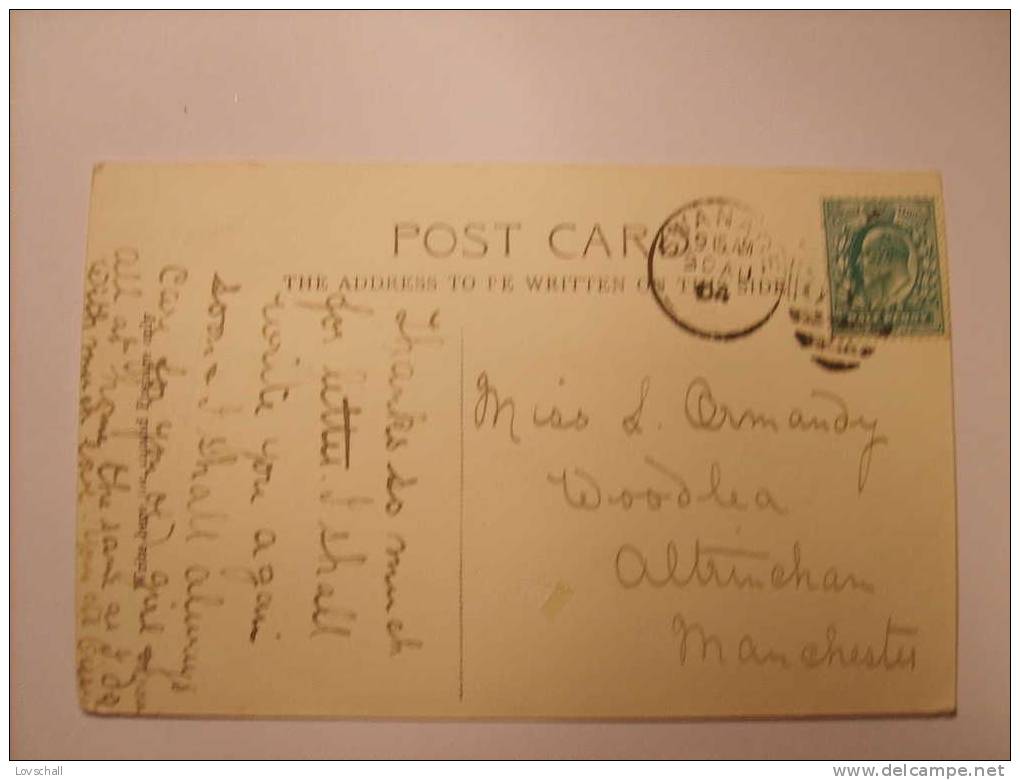 POST CARD
THE ADDRESS TO BE WRITTEN ON THIS SIDE
04
Thanks so much
for letter. I shall
write you again
soon. I shall always
Care for you old girl
all at home the same as I do
With much love
Miss L. Ormandy
Woodlea
Altrincham
Manchester
Lovschall
www.delcampe.net